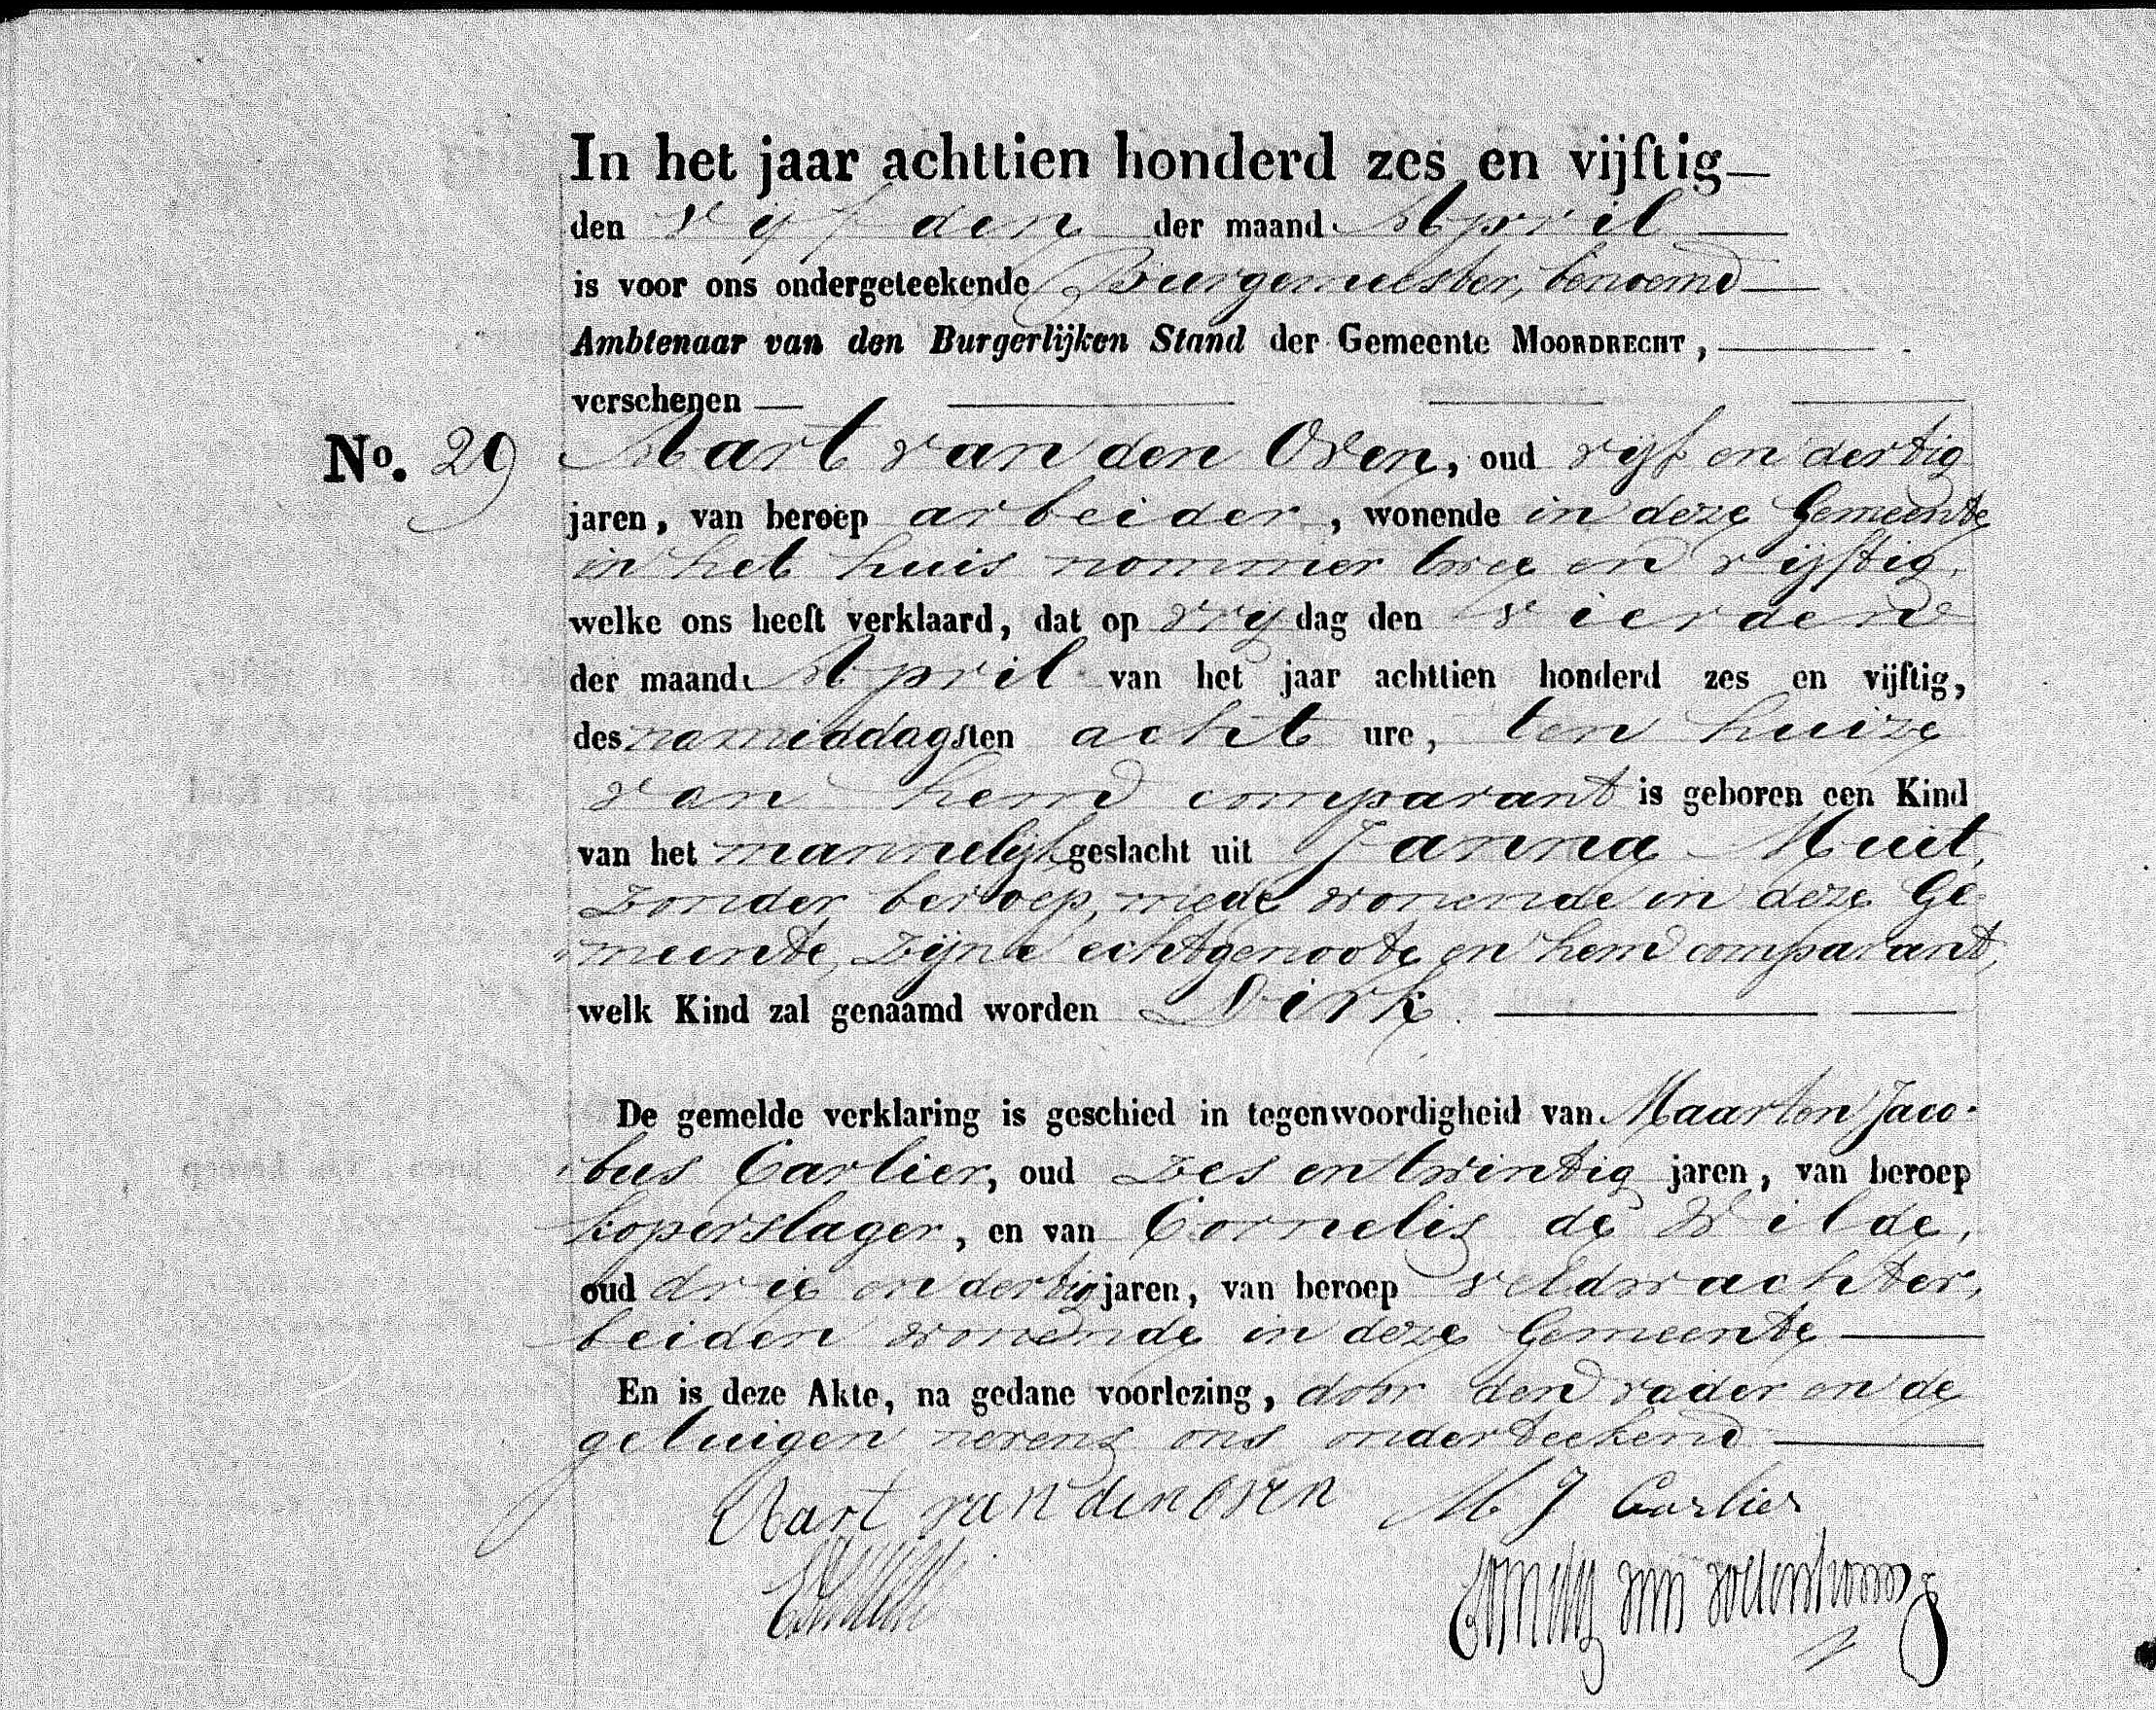 In het jaar achttien honderd zes en vijftig
den vijfden der maand April
is voor ons ondergeteekende Burgemeester, benoemd
Ambtenaar van den Burgerlijken Stand der Gemeente MOORDRECHT,
verschenen
No. 29 Aart van den Oven, oud vijf en dertig
jaren, van beroep arbeider, wonende in deze Gemeente
in het huis nommer twee en vijftig,
welke ons heeft verklaard, dat op vrijdag den vierden
der maand April van het jaar achttien honderd zes en vijftig,
des namiddags ten acht ure, ten huize
van hem comparant is geboren een Kind
van het mannelijk geslacht uit Janna Muit,
zonder beroep, mede wonende in deze Ge-
meente, zijne echtgenoote en hem comparant,
welk Kind zal genaamd worden Dirk.
De gemelde verklaring is geschied in tegenwoordigheid van Maarten Jaco-
bus Carlier, oud zes en twintig jaren, van beroep
koperslager, en van Cornelis de Wilde,
oud drie en dertig jaren, van beroep veldwachter,
beiden wonende in deze Gemeente
En is deze Akte, na gedane voorlezing, door den vader en de
getuigen nevens ons onderteekend
Aart van den oven M J Carlier